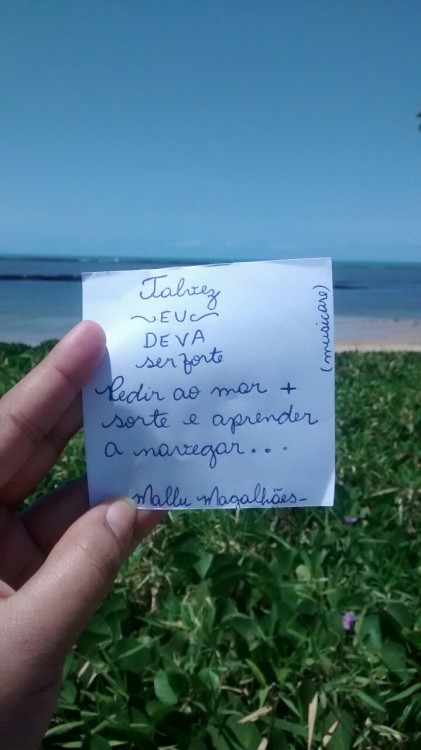 Talvez
~EU~
DEVA
ser forte
Pedir ao mar +
sorte e aprender
a navegar...
Mallu Magalhães-
(musicare)